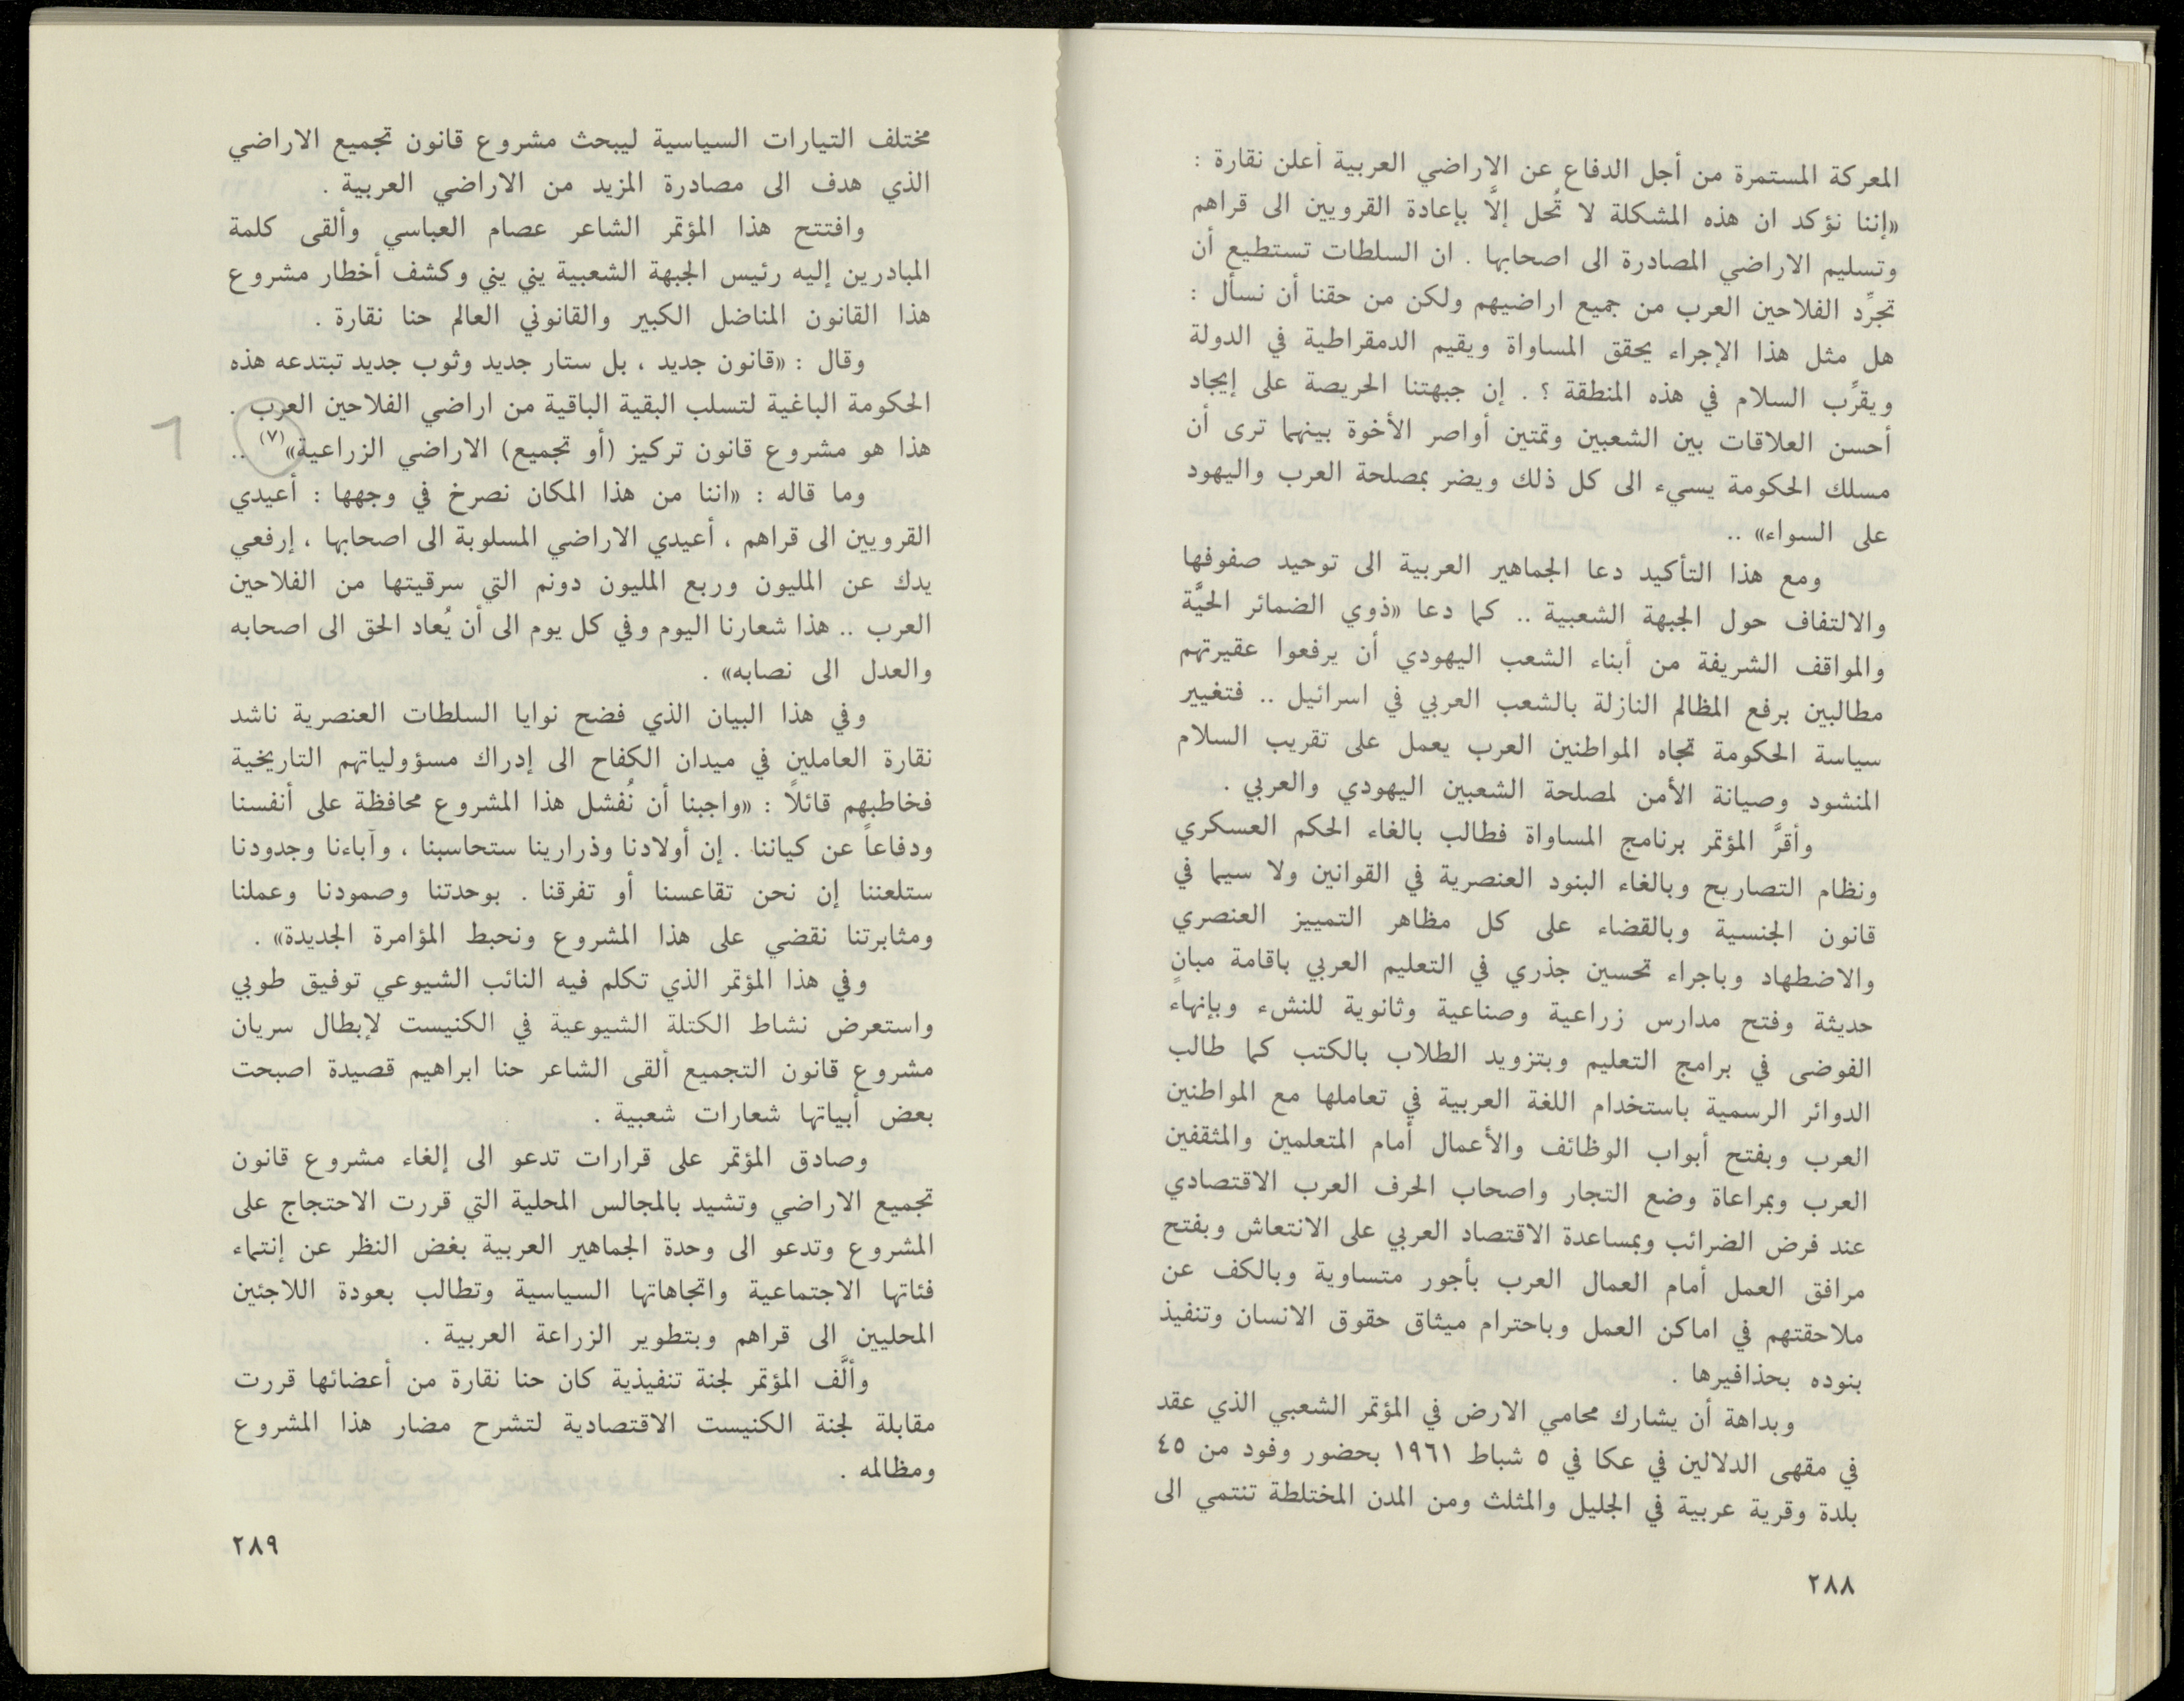 المعركة المستمرة من أجل الدفاع عن الاراضي العربية أعلن نقارة :
«إننا نؤكد ان هذه المشكلة لا تُحل إلاَّ بإعادة القرويين الى قراهم
وتسليم الاراضي المصادرة الى اصحابها . ان السلطات تستطيع أن
تجرِّد الفلاحين العرب من جميع اراضيهم ولكن من حقنا أن نسأل :
هل مثل هذا الإجراء يحقق المساواة ويقيم الدمقراطية في الدولة
ويقرِّب السلام في هذه المنطقة ؟ . إن جبهتنا الحريصة على إيجاد
أحسن العلاقات بين الشعبين وتمتين أواصر الأخوة بينهما ترى أن
مسلك الحكومة يسيء الى كل ذلك ويضر بمصلحة العرب واليهود
على السواء» ..
ومع هذا التأكيد دعا الجماهير العربية الى توحيد صفوفها
والالتفاف حول الجبهة الشعبية .. كما دعا «ذوي الضمائر الحيَّة
والمواقف الشريفة من أبناء الشعب اليهودي أن يرفعوا عقيرتهم
مطالبين برفع المظالم النازلة بالشعب العربي في اسرائيل .. فتغيير
سياسة الحكومة تجاه المواطنين العرب يعمل على تقريب السلام
المنشود وصيانة الأمن لمصلحة الشعبين اليهودي والعربي .
وأقرَّ المؤتمر برنامج المساواة فطالب بالغاء الحكم العسكري
ونظام التصاريح وبالغاء البنود العنصرية في القوانين ولا سيما في
قانون الجنسية وبالقضاء على كل مظاهر التمييز العنصري
والاضطهاد وباجراء تحسين جذري في التعليم العربي باقامة مبانٍ
حديثة وفتح مدارس زراعية وصناعية وثانوية للنشء وبإنهاء
الفوضى في برامج التعليم وبتزويد الطلاب بالكتب كما طالب
الدوائر الرسمية باستخدام اللغة العربية في تعاملها مع المواطنين
العرب وبفتح أبواب الوظائف والأعمال أمام المتعلمين والمثقفين
العرب وبمراعاة وضع التجار واصحاب الحرف العرب الاقتصادي
عند فرض الضرائب وبمساعدة الاقتصاد العربي على الانتعاش وبفتح
مرافق العمل أمام العمال العرب بأجور متساوية وبالكف عن
ملاحقتهم في اماكن العمل وباحترام ميثاق حقوق الانسان وتنفيذ
بنوده بحذافيرها .
وبداهة أن يشارك محامي الارض في المؤتمر الشعبي الذي عقد
في مقهى الدلالين في عكا في ٥ شباط ١٩٦١ بحضور وفود من ٤٥
بلدة وقرية عربية في الجليل والمثلث ومن المدن المختلطة تنتمي الى
٢٨٨
مختلف التيارات السياسية ليبحث مشروع قانون تجميع الاراضي
الذي هدف الى مصادرة المزيد من الاراضي العربية .
وافتتح هذا المؤتمر الشاعر عصام العباسي وألقى كلمة
المبادرين إليه رئيس الجبهة الشعبية يني يني وكشف أخطار مشروع
هذا القانون المناضل الكبير والقانوني العالم حنا نقارة .
وقال : «قانون جديد ، بل ستار جديد وثوب جديد تبتدعه هذه
الحكومة الباغية لتسلب البقية الباقية من اراضي الفلاحين العرب .
هذا هو مشروع قانون تركيز (أو تجميع) الاراضي الزراعية»(٧) ..
وما قاله : «اننا من هذا المكان نصرخ في وجهها : أعيدي
القرويين الى قراهم ، أعيدي الاراضي المسلوبة الى اصحابها ، إرفعي
يدك عن المليون وربع المليون دونم التي سرقيتها من الفلاحين
العرب .. هذا شعارنا اليوم وفي كل يوم الى أن يُعاد الحق الى اصحابه
والعدل الى نصابه» .
وفي هذا البيان الذي فضح نوايا السلطات العنصرية ناشد
نقارة العاملين في ميدان الكفاح الى إدراك مسؤولياتهم التاريخية
فخاطبهم قائلاً : «واجبنا أن نُفشل هذا المشروع محافظة على أنفسنا
ودفاعاً عن كياننا . إن أولادنا وذرارينا ستحاسبنا ، وآباءنا وجدودنا
ستلعننا إن نحن تقاعسنا أو تفرقنا . بوحدتنا وصمودنا وعملنا
ومثابرتنا نقضي على هذا المشروع ونحبط المؤامرة الجديدة» .
وفي هذا المؤتمر الذي تكلم فيه النائب الشيوعي توفيق طوبي
واستعرض نشاط الكتلة الشيوعية في الكنيست لإبطال سريان
مشروع قانون التجميع ألقى الشاعر حنا ابراهيم قصيدة اصبحت
بعض أبياتها شعارات شعبية .
وصادق المؤتمر على قرارات تدعو الى إلغاء مشروع قانون
تجميع الاراضي وتشيد بالمجالس المحلية التي قررت الاحتجاج على
المشروع وتدعو الى وحدة الجماهير العربية بغض النظر عن إنتماء
فئاتها الاجتماعية واتجاهاتها السياسية وتطالب بعودة اللاجئين
المحليين الى قراهم وبتطوير الزراعة العربية .
وألَّف المؤتمر لجنة تنفيذية كان حنا نقارة من أعضائها قررت
مقابلة لجنة الكنيست الاقتصادية لتشرح مضار هذا المشروع
ومظالمه .
٢٨٩